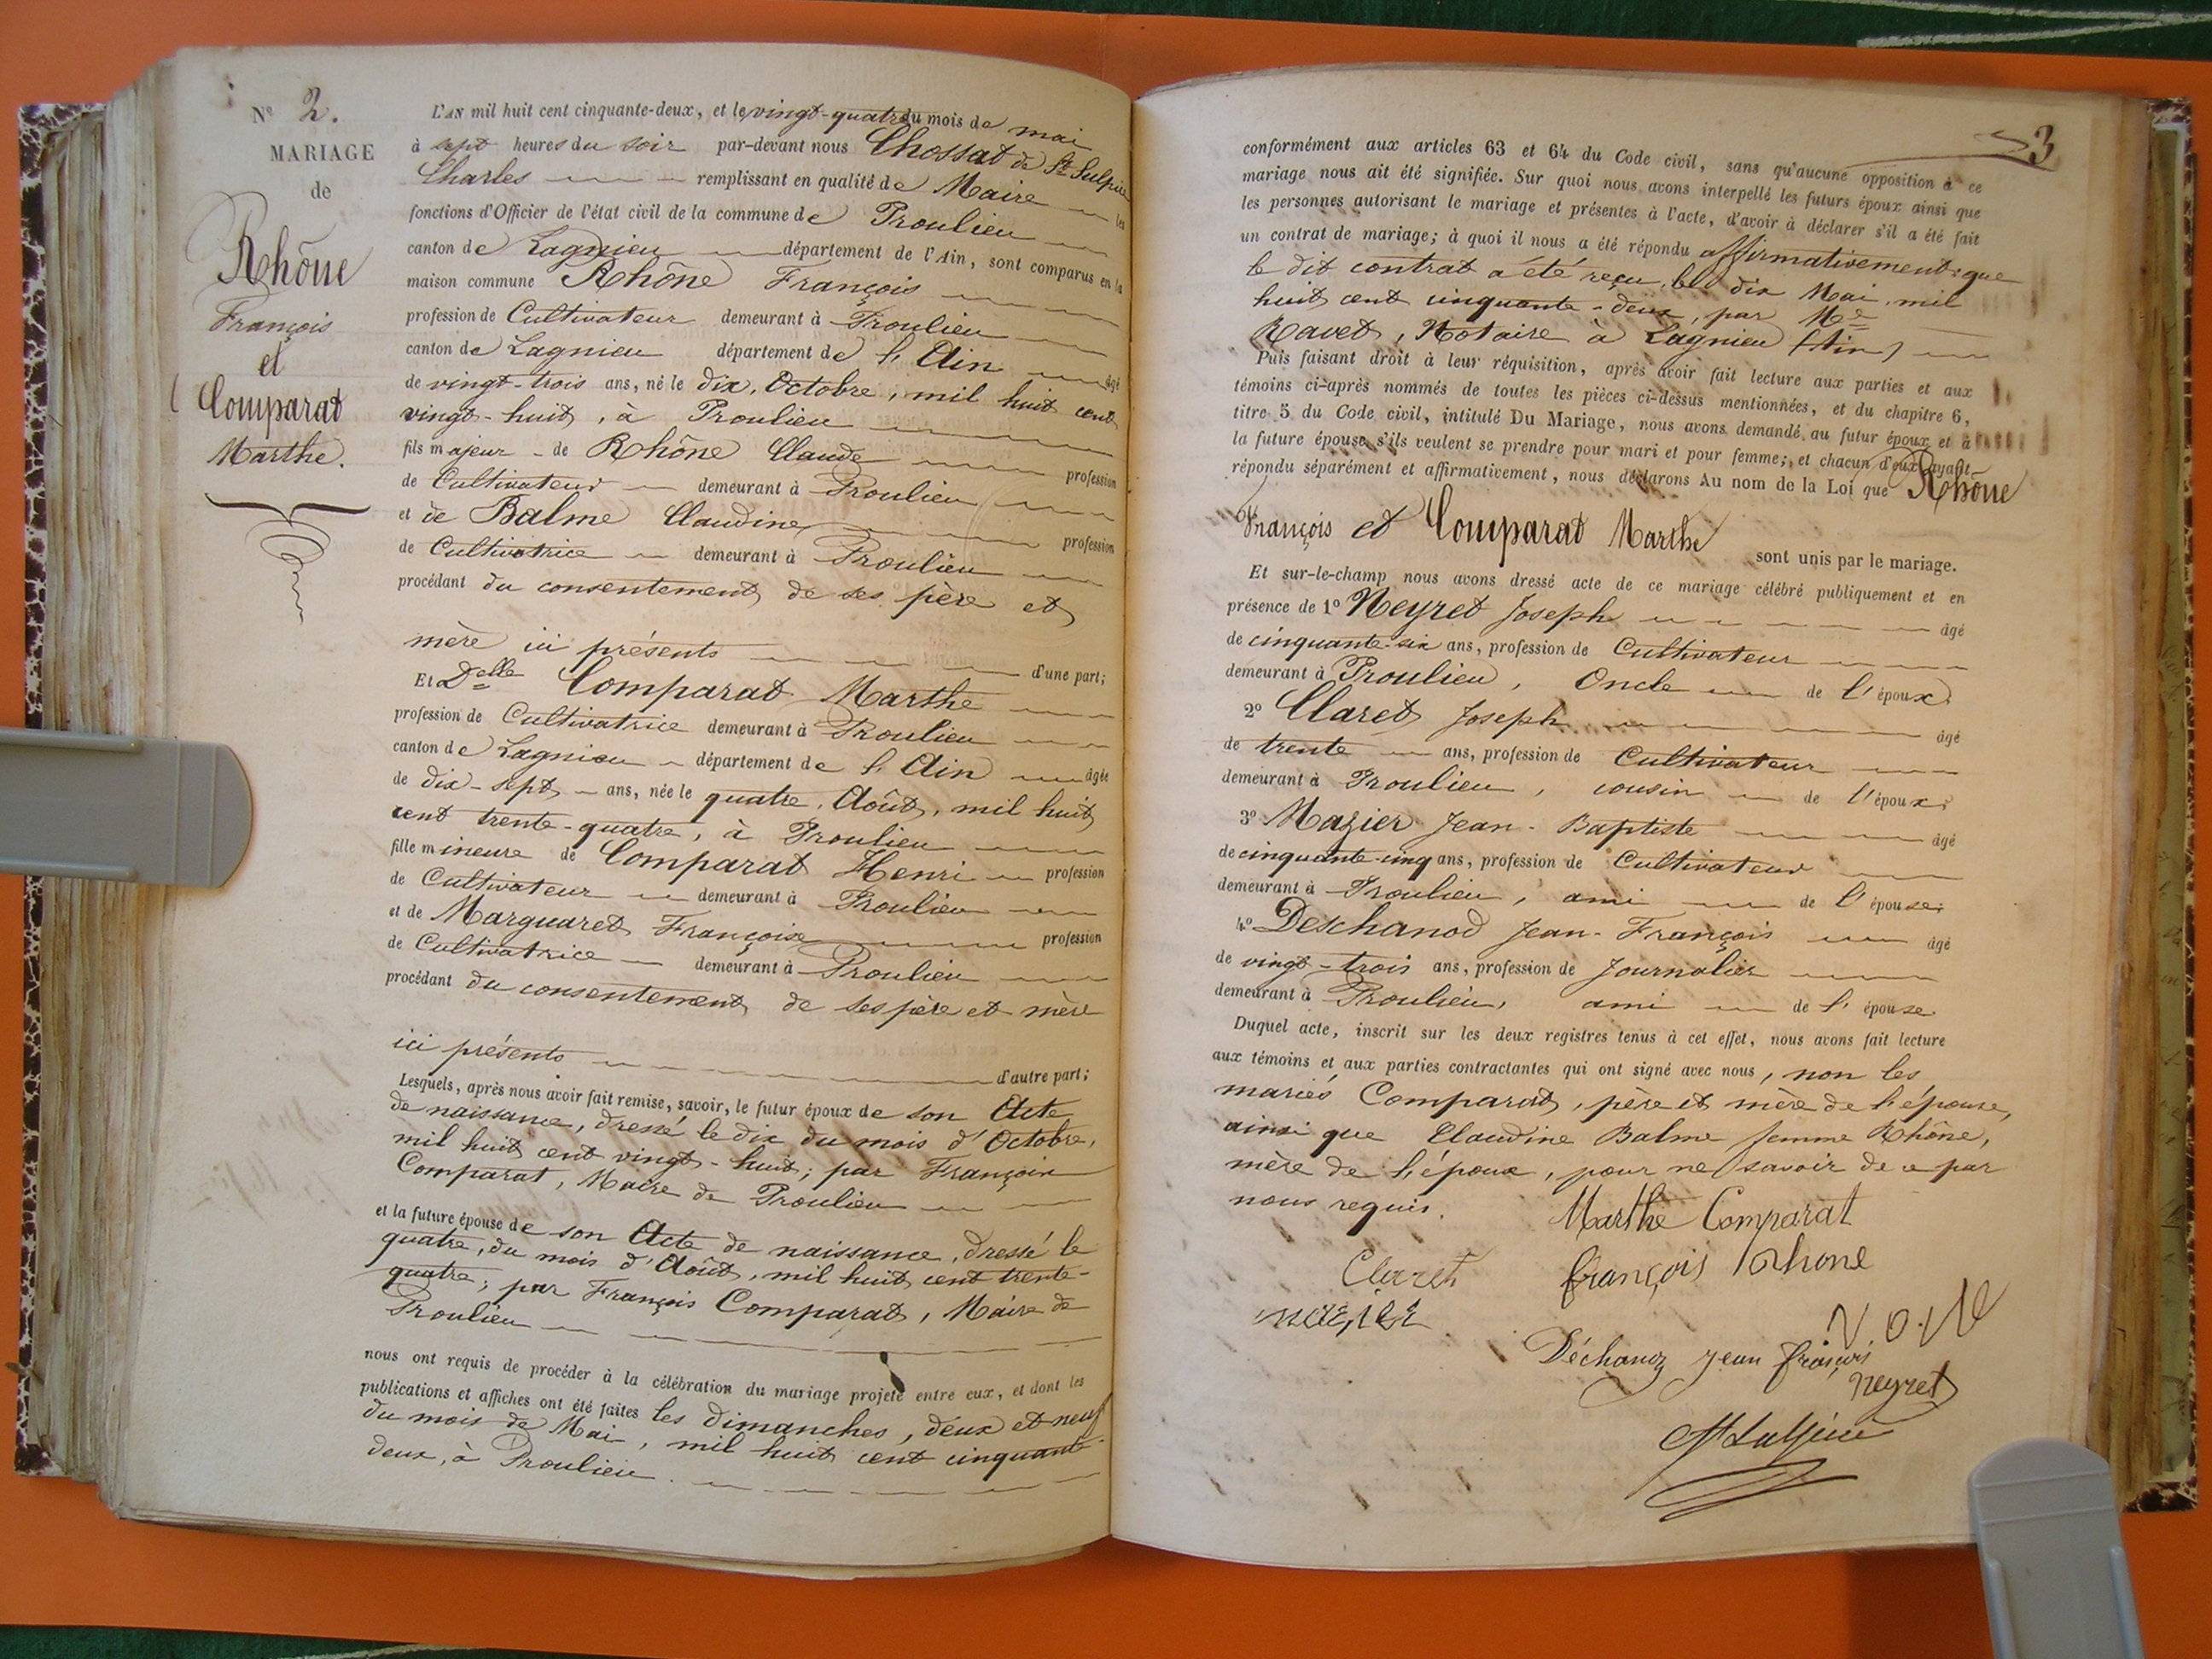 N° 2.
MARIAGE
de
Rhône
François
et
Comparat
Marthe.
L'AN mil huit cent cinquante-deux, et le vingt-quatre du mois de mai
à sept heures du soir par-devant nous Chossat de St Sulpice
Charles remplissant en qualité de Maire les
fonctions d'Officier de l'état civil de la commune de Proulieu
canton de Lagnieu département de l'Ain, sont comparus en la
maison commune Rhône François
profession de Cultivateur demeurant à Proulieu
canton de Lagnieu département de l'Ain âgé
de vingt-trois ans, né le dix, Octobre, mil huit cent
vingt-huit, à Proulieu
fils majeur de Rhône Claude profession
de Cultivateur demeurant à Proulieu
et de Balme Claudine profession
de Cultivatrice demeurant à Proulieu
procédant du consentement de ses père et
mère ici présents d'une part;
Et Delle Comparat Marthe
profession de Cultivatrice demeurant à Proulieu
canton de Lagnieu département de l'Ain âgée
de dix-sept ans, née le quatre, Août, mil huit
cent trente-quatre, à Proulieu
fille mineure de Comparat Henri profession
de Cultivateur demeurant à Proulieu
et de Marguaret Françoise profession
de Cultivatrice demeurant à Proulieu
procédant du consentement de ses père et mère
ici présents d'autre part;
Lesquels, après nous avoir fait remise, savoir, le futur époux de son Acte
de naissance, dressé le dix du mois d'Octobre,
mil huit cent vingt-huit; par François
Comparat, Maire de Proulieu
et la future épouse de son Acte de naissance, dressé le
quatre, du mois d'Août, mil huit cent trente-
quatre; par François Comparat, Maire de
Proulieu
nous ont requis de procéder à la célébration du mariage projeté entre eux, et dont les
publications et affiches ont été faites les dimanches, deux et neuf
du mois de Mai, mil huit cent cinquante-
deux, à Proulieu.
3
conformément aux articles 63 et 64 du Code civil, sans qu'aucune opposition à ce
mariage nous ait été signifiée. Sur quoi nous avons interpellé les futurs époux ainsi que
les personnes autorisant le mariage et présentes à l'acte, d'avoir à déclarer s'il a été fait
un contrat de mariage; à quoi il nous a été répondu affirmativement que
le dit contrat a été reçu, le dix Mai, mil
huit cent cinquante-deux, par Me
Ravet, Notaire à Lagnieu (Ain)
Puis faisant droit à leur réquisition, après avoir fait lecture aux parties et aux
témoins ci-après nommés de toutes les pièces ci-dessus mentionnées, et du chapitre 6,
titre 5 du Code civil, intitulé Du Mariage, nous avons demandé au futur époux et à
la future épouse s'ils veulent se prendre pour mari et pour femme; et chacun d'eux ayant
répondu séparément et affirmativement, nous déclarons Au nom de la Loi que Rhône
François et Comparat Marthe sont unis par le mariage.
Et sur-le-champ nous avons dressé acte de ce mariage célébré publiquement et en
présence de 1° Neyret Joseph âgé
de cinquante-six ans, profession de Cultivateur
demeurant à Proulieu, Oncle de l'époux
2° Claret Joseph âgé
de trente ans, profession de Cultivateur
demeurant à Proulieu, cousin de l'époux;
3° Mazier Jean-Baptiste âgé
de cinquante-cinq ans, profession de Cultivateur
demeurant à Proulieu, ami de l'épouse;
4° Deschanod Jean-François âgé
de vingt-trois ans, profession de Journalier
demeurant à Proulieu, ami de l'épouse
Duquel acte, inscrit sur les deux registres tenus à cet effet, nous avons fait lecture
aux témoins et aux parties contractantes qui ont signé avec nous, non les
mariés Comparat, père et mère de l'épouse,
ainsi que Claudine Balme femme Rhône,
mère de l'époux, pour ne savoir de ce par
nous requis.
Marthe Comparat
Claret
françois Rhone
mazier
Déchanoz jean françois
neyret